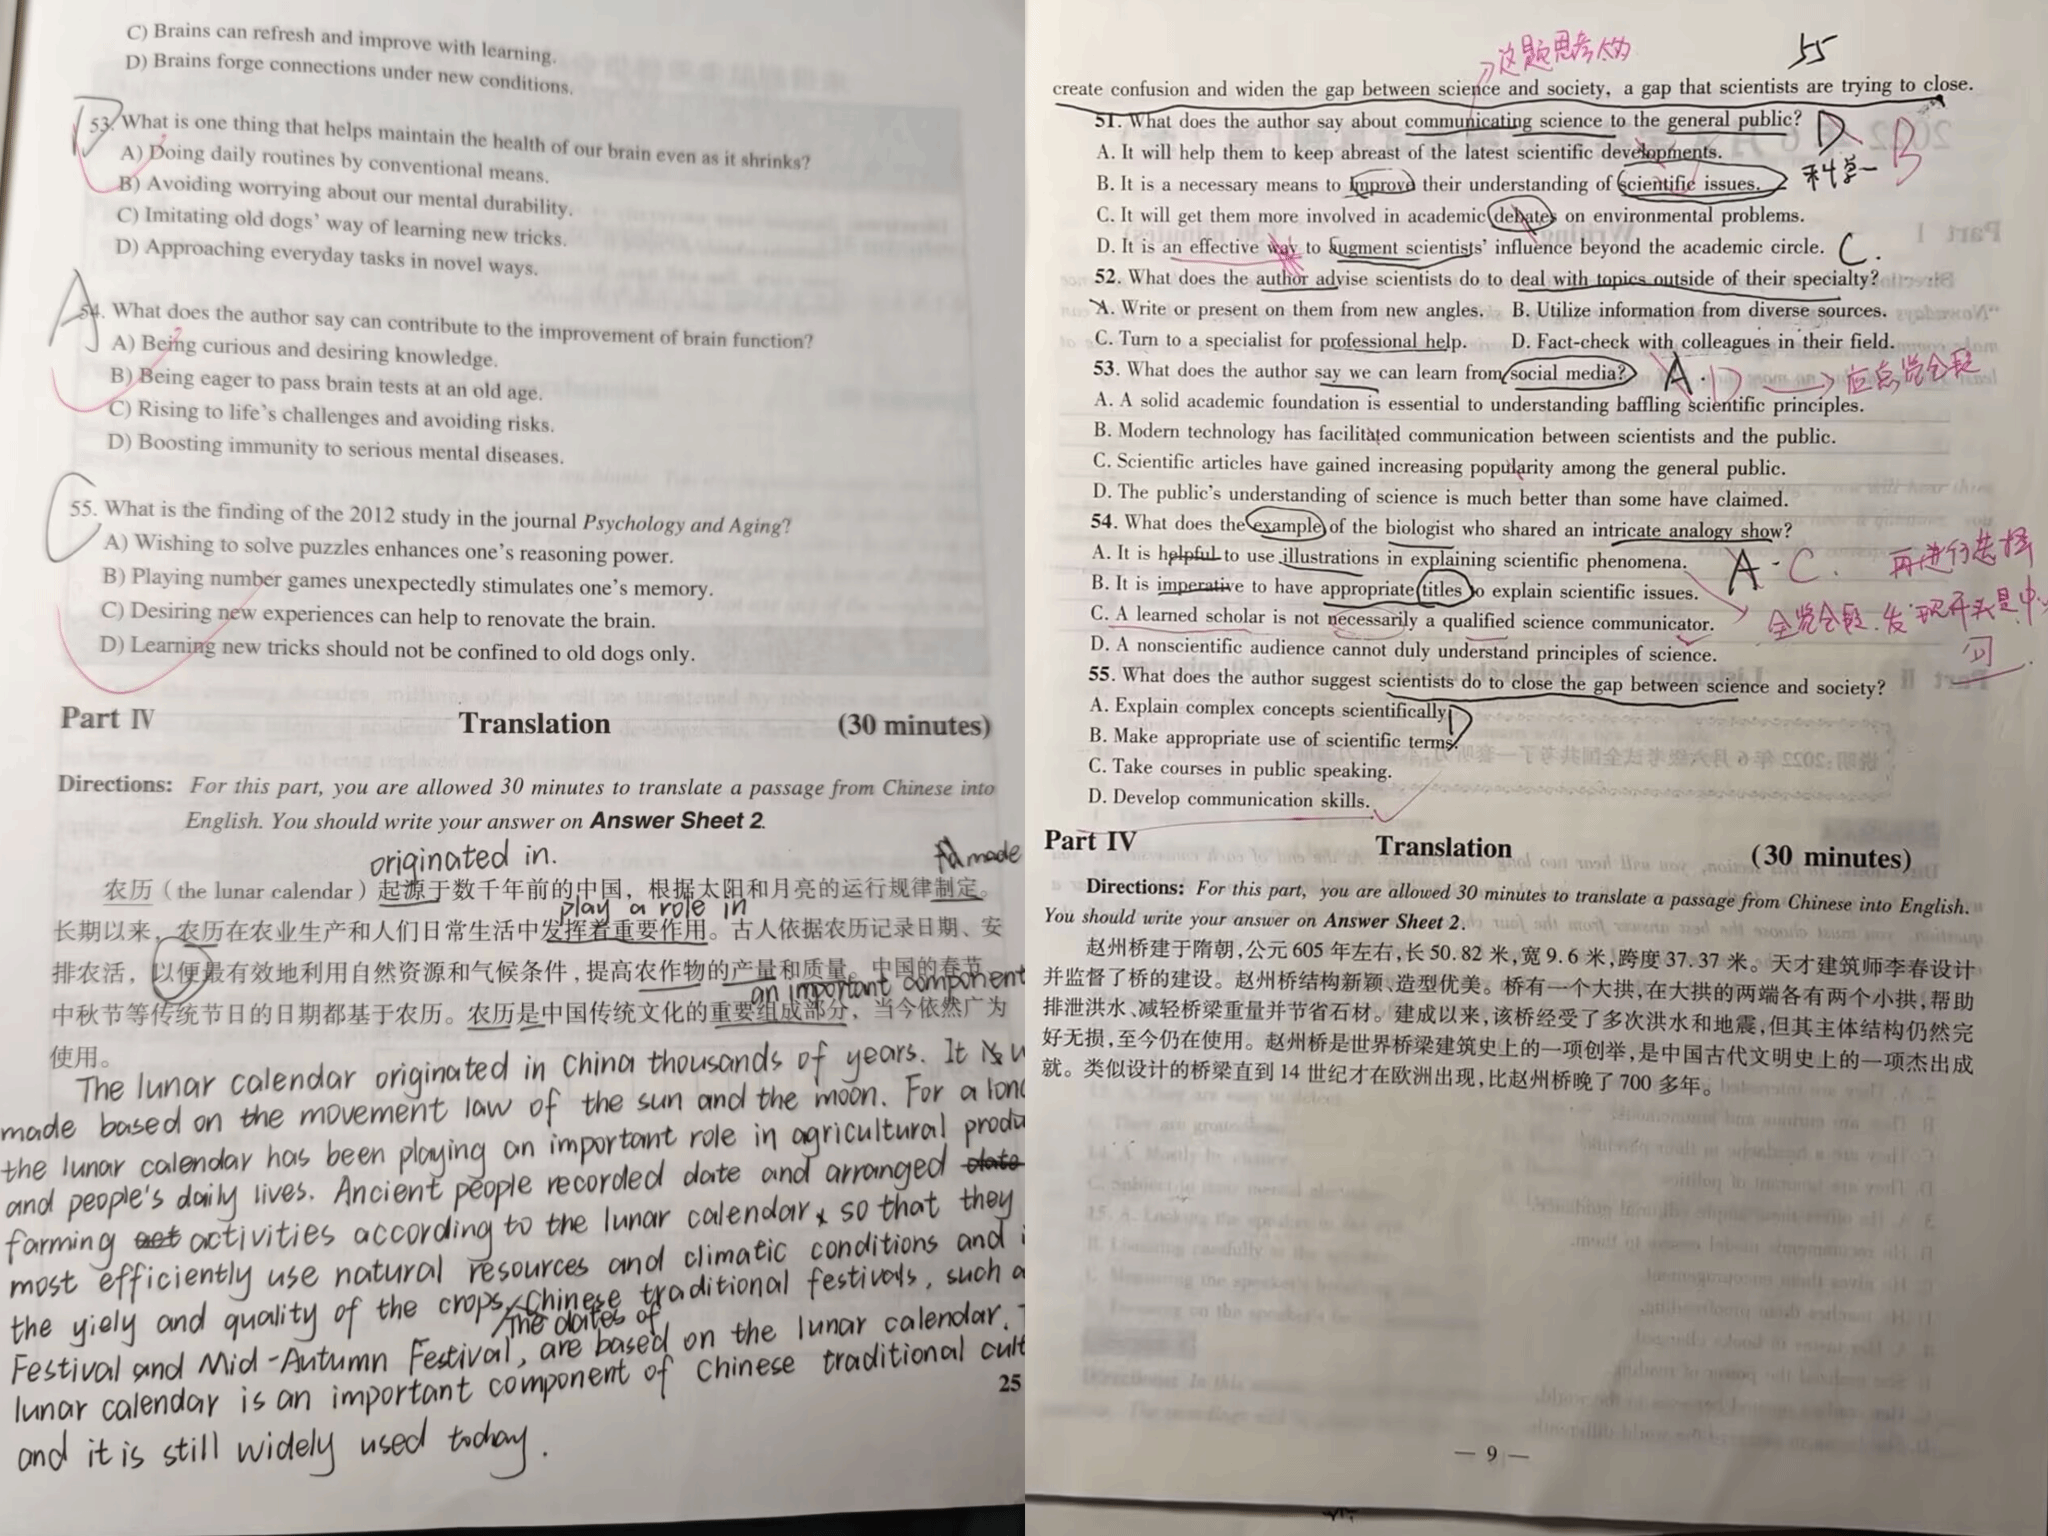 C) Brains can refresh and improve with learning.
D) Brains forge connections under new conditions.
D
53. What is one thing that helps maintain the health of our brain even as it shrinks?
A) Doing daily routines by conventional means.
B) Avoiding worrying about our mental durability.
C) Imitating old dogs' way of learning new tricks.
D) Approaching everyday tasks in novel ways.
A
54. What does the author say can contribute to the improvement of brain function?
A) Being curious and desiring knowledge.
B) Being eager to pass brain tests at an old age.
C) Rising to life's challenges and avoiding risks.
D) Boosting immunity to serious mental diseases.
C
55. What is the finding of the 2012 study in the journal Psychology and Aging?
A) Wishing to solve puzzles enhances one's reasoning power.
B) Playing number games unexpectedly stimulates one's memory.
C) Desiring new experiences can help to renovate the brain.
D) Learning new tricks should not be confined to old dogs only.
Part IV Translation (30 minutes)
Directions: For this part, you are allowed 30 minutes to translate a passage from Chinese into
English. You should write your answer on Answer Sheet 2.
originated in. made
农历（the lunar calendar）起源于数千年前的中国，根据太阳和月亮的运行规律制定。
play a role in
长期以来，农历在农业生产和人们日常生活中发挥着重要作用。古人依据农历记录日期、安
排农活，以便最有效地利用自然资源和气候条件，提高农作物的产量和质量。中国的春节、
an important component
中秋节等传统节日的日期都基于农历。农历是中国传统文化的重要组成部分，当今依然广为
使用。
The lunar calendar originated in China thousands of years. It is
made based on the movement law of the sun and the moon. For a long
the lunar calendar has been playing an important role in agricultural produ
and people's daily lives. Ancient people recorded date and arranged date
farming act activities according to the lunar calendar, so that they
most efficiently use natural resources and climatic conditions and
the yiely and quality of the crops. Chinese traditional festivals, such a
The dates of
Festival and Mid-Autumn Festival, are based on the lunar calendar.
lunar calendar is an important component of Chinese traditional cult
25
and it is still widely used today.
这题思考
55
create confusion and widen the gap between science and society, a gap that scientists are trying to close.
51. What does the author say about communicating science to the general public? D B
A. It will help them to keep abreast of the latest scientific developments.
B. It is a necessary means to improve their understanding of scientific issues. 科学一
C. It will get them more involved in academic debates on environmental problems.
D. It is an effective way to augment scientists' influence beyond the academic circle. C.
52. What does the author advise scientists do to deal with topics outside of their specialty?
A. Write or present on them from new angles. B. Utilize information from diverse sources.
C. Turn to a specialist for professional help. D. Fact-check with colleagues in their field.
53. What does the author say we can learn from social media? A. D 应总览全段
A. A solid academic foundation is essential to understanding baffling scientific principles.
B. Modern technology has facilitated communication between scientists and the public.
C. Scientific articles have gained increasing popularity among the general public.
D. The public's understanding of science is much better than some have claimed.
54. What does the example of the biologist who shared an intricate analogy show?
A. It is helpful to use illustrations in explaining scientific phenomena. A. C. 再进行选择
B. It is imperative to have appropriate titles to explain scientific issues.
C. A learned scholar is not necessarily a qualified science communicator. 全览全段，发现开头是中心
D. A nonscientific audience cannot duly understand principles of science. 句.
55. What does the author suggest scientists do to close the gap between science and society?
A. Explain complex concepts scientifically. D
B. Make appropriate use of scientific terms.
C. Take courses in public speaking.
D. Develop communication skills.
Part IV Translation (30 minutes)
Directions: For this part, you are allowed 30 minutes to translate a passage from Chinese into English.
You should write your answer on Answer Sheet 2.
赵州桥建于隋朝，公元 605 年左右，长 50.82 米，宽 9.6 米，跨度 37.37 米。天才建筑师李春设计
并监督了桥的建设。赵州桥结构新颖、造型优美。桥有一个大拱，在大拱的两端各有两个小拱，帮助
排泄洪水、减轻桥梁重量并节省石材。建成以来，该桥经受了多次洪水和地震，但其主体结构仍然完
好无损，至今仍在使用。赵州桥是世界桥梁建筑史上的一项创举，是中国古代文明史上的一项杰出成
就。类似设计的桥梁直到 14 世纪才在欧洲出现，比赵州桥晚了 700 多年。
— 9 —